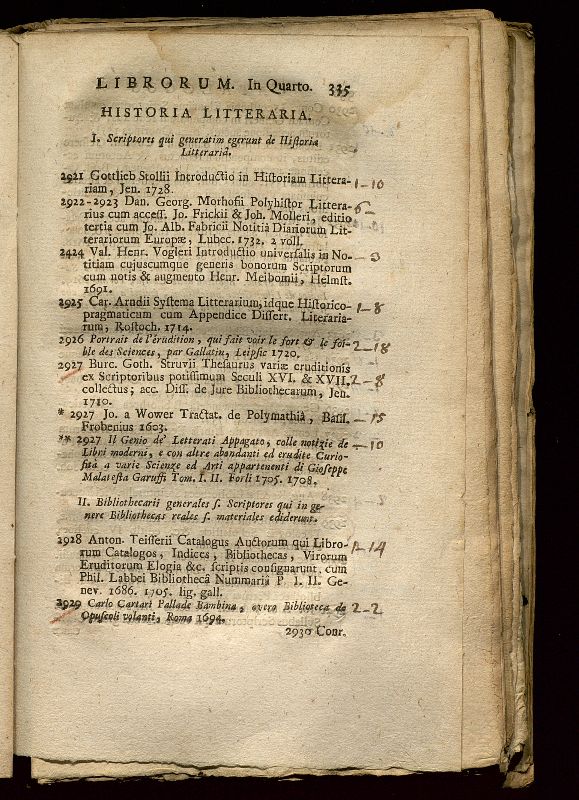 LIBRORUM. In Quarto. 335
HISTORIA LITTERARIA.
I. Scriptores qui generatim egerunt de Historia
Litteraria.
2921 Gottlieb Stollii Introductio in Historiam Littera- 1-10
riam, Jen. 1728.
2922-2923 Dan. Georg. Morhofii Polyhistor Littera- 6-
rius cum access. Jo. Frickii & Joh. Molleri, editio
tertia cum Jo. Alb. Fabricii Notitiâ Diariorum Lit-
terariorum Europæ, Lubec. 1732. 2 voll.
2424 Val. Henr. Vogleri Introductio universalis in No-
titiam cujuscumque generis bonorum Scriptorum
cum notis & augmento Henr. Meibomii, Helmst.
1691.
2925 Car. Arndii Systema Litterarium, idque Historico- 1-8
pragmaticum cum Appendice Dissert. Literaria-
rum, Rostoch. 1714.
2926 Portrait de l'érudition, qui fait voir le fort & le foi- 2-18
ble des Sciences, par Gallatin, Leipsic 1720.
2927 Burc. Goth. Struvii Thesaurus variæ eruditionis
ex Scriptoribus potissimum Seculi XVI. & XVII. 2-8
collectus; acc. Diss. de Jure Bibliothecarum, Jen.
1710.
* 2927 Jo. a Wower Tractat. de Polymathiâ, Basil. -15
Frobenius 1603.
** 2927 Il Genio de' Letterati Appagato, colle notizie de -10
Libri moderni, e con altre abondanti ed erudite Curio-
sità a varie Scienze ed Arti appartenenti di Gioseppe
Malatesta Garuffi Tom. I. II. Forli 1705. 1708.
II. Bibliothecarii generales s. Scriptores qui in ge-
nere Bibliothecas reales s. materiales ediderunt.
2928 Anton. Teisserii Catalogus Auctorum qui Libro- 1-14
rum Catalogos, Indices, Bibliothecas, Virorum
Eruditorum Elogia &c. scriptis consignarunt, cum
Phil. Labbei Bibliothecâ Nummariâ P. I. II. Ge-
nev. 1686. 1705. lig. gall.
2929 Carlo Cartari Pallade Bambina, overo Biblioteca de 2-2
Opuscoli volanti, Roma 1694.
2930 Conr.